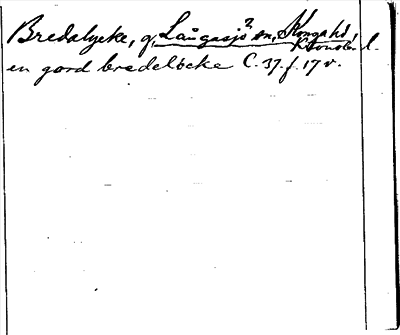 Bredalycke, g, Långasjö? sn, Konga hd,
Kronob. l.
en gord bredelöcke C. 37. f. 17 v.